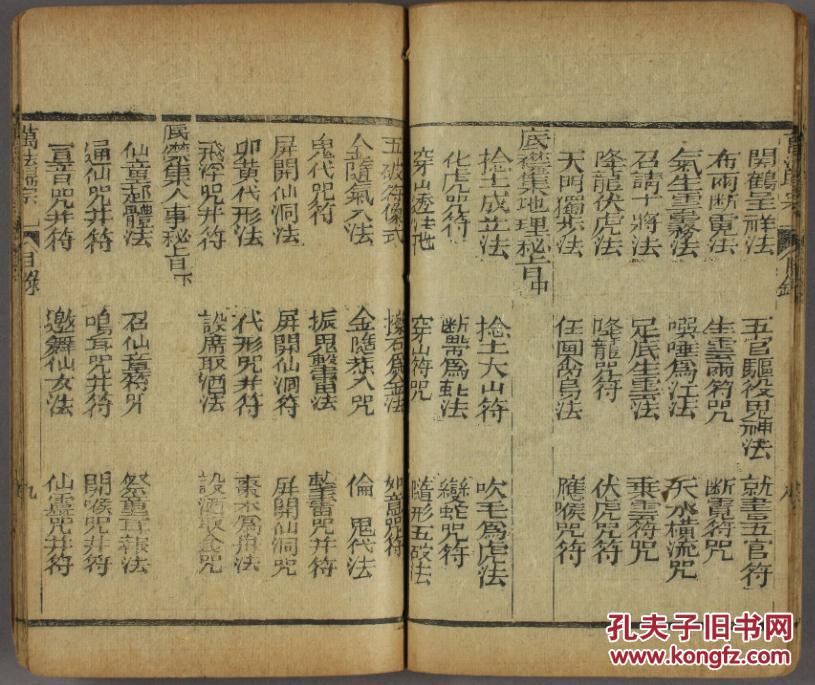 開鶴呈祥法 五官驅役鬼神法 就書五官符
布雨断霓法 生雲雨符咒 断霓符咒
氣生雲霧務法 噀唾為江法 天水橫流咒
召請十將法 足底生雲法 乘雲符咒
降龍伏虎法 降龍咒符 伏虎咒符
天門獨步法 任画飛鳥法 應喉咒符
底襟集地理秘旨中
捻土成立法 捻土大山符 吹毛為虎法
化虎咒符 断帶為蛇法 變蛇咒符
穿山透法地 穿山符咒 隨形五破法
五破符像式 擦石為金法 如意咒符
金隨氣入法 金隨恭入咒 倫鬼代法
鬼代咒符 振鬼擊書法 擊書咒并符
屏開仙洞法 屏開仙洞符 屏開仙洞咒
卯黄代形法 代形咒并符 棗木為舟法
飛浮咒并符 設席取酒法 設酒取金咒
底襟集人事秘旨下
仙童郄體法 召仙童符 祭童耳報法
通仙咒并符 鳴耳咒并符 開喉咒并符
盲音咒并符 邀舞仙女法 仙靈咒并符
萬法歸宗 目錄 九
孔夫子旧书网
www.kongfz.com